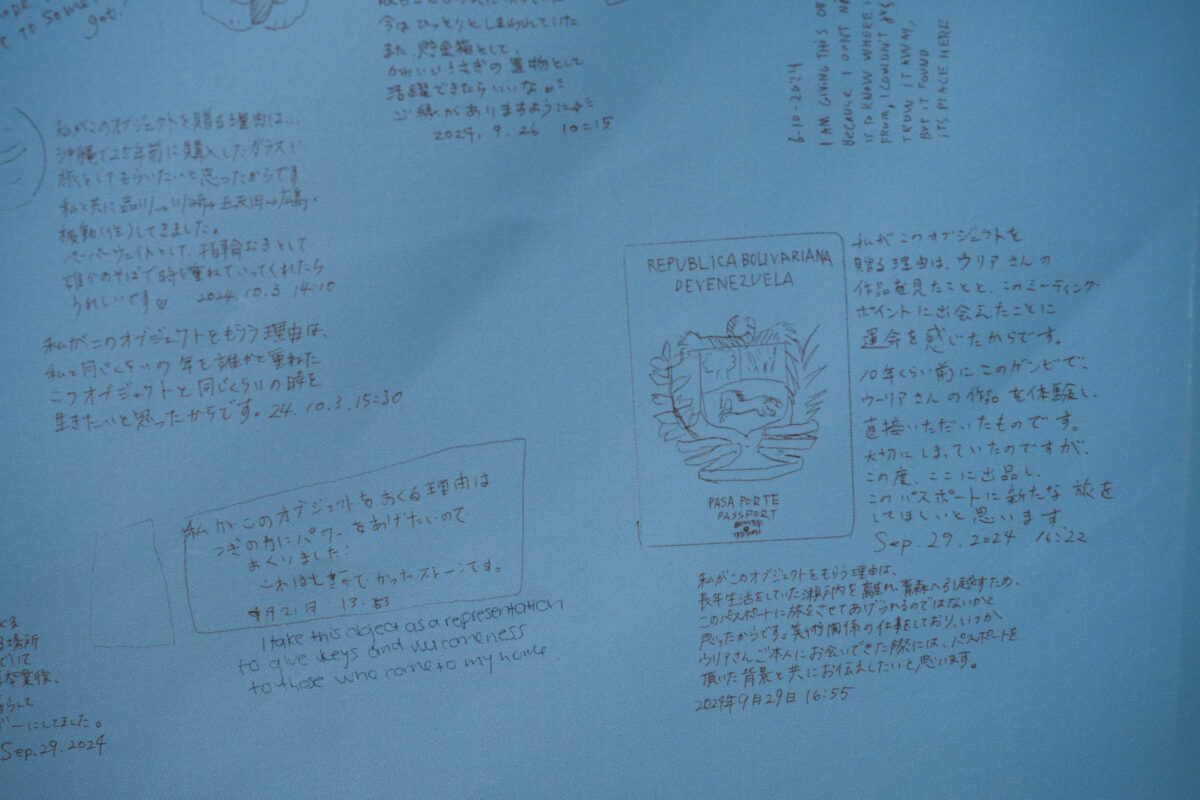 got.
今は ひっそりと しまわれていた
また、貯金箱として
かわいいうさぎの置物として
活躍できたらいいな
ご縁がありますように
2024. 9. 26 10=15
6-10-2024
I AM GIVING THIS OB
BECAUSE I DONT
IF TO KNOW WHERE I
FROM, I COULDN'T
TROW IT AWAY,
BUT IT FOUND
ITS PLACE HERE
私がこのオブジェクトを贈る理由は...
沖縄で25年前に購入したガラスに
旅をしてもらいたいと思ったからです
私と共に品川→川崎→五反田→広島と
移動(住)してきました。
ペーパーウェイトとして、指輪おきとして
誰かのそばで時を重ねていってくれたら
うれしいです 2024.10.3 14:10
私がこのオブジェクトをもらう理由は、
私と同じくらいの年を誰かと重ねた
このオブジェクトと同じくらいの時を
生きたいと思ったからです。24.10.3.15:30
REPUBLICA BOLIVARIANA
DE VENEZUELA
PASAPORTE
PASSPORT
私がこのオブジェクトを
贈る理由は、ウリアさんの
作品を見たことと、このミーティング
ポイントに出会えたことに
運命を感じたからです。
10年くらい前にこのゲンビで、
ウーリアさんの作品を体験し、
直接いただいたものです。
大切にしまっていたのですが、
この度、ここに出品し、
このパスポートに新たな旅を
してほしいと思います。
Sep. 29. 2024 16:22
私がこのオブジェクトをもらう理由は、
長年生活をしていた瀬戸内を離れ、青森へ引越すため、
このパスポートに旅をさせてあげられるのではないかと
思ったからです。美術関係の仕事をしており、いつか
ウリアさんご本人にお会いできた際には、パスポートを
頂いた背景と共にお伝えしたいと思います。
2024年9月29日 16:55
私がこのオブジェクトをおくる理由は
つぎの方にパワーをあげたいので
おくりました!
ストーンです。
9月21日 13:53
I take this object as a representation
to give keys and
to those who come to my home
場所
卒業後、
にしてました。
Sep. 29. 2024